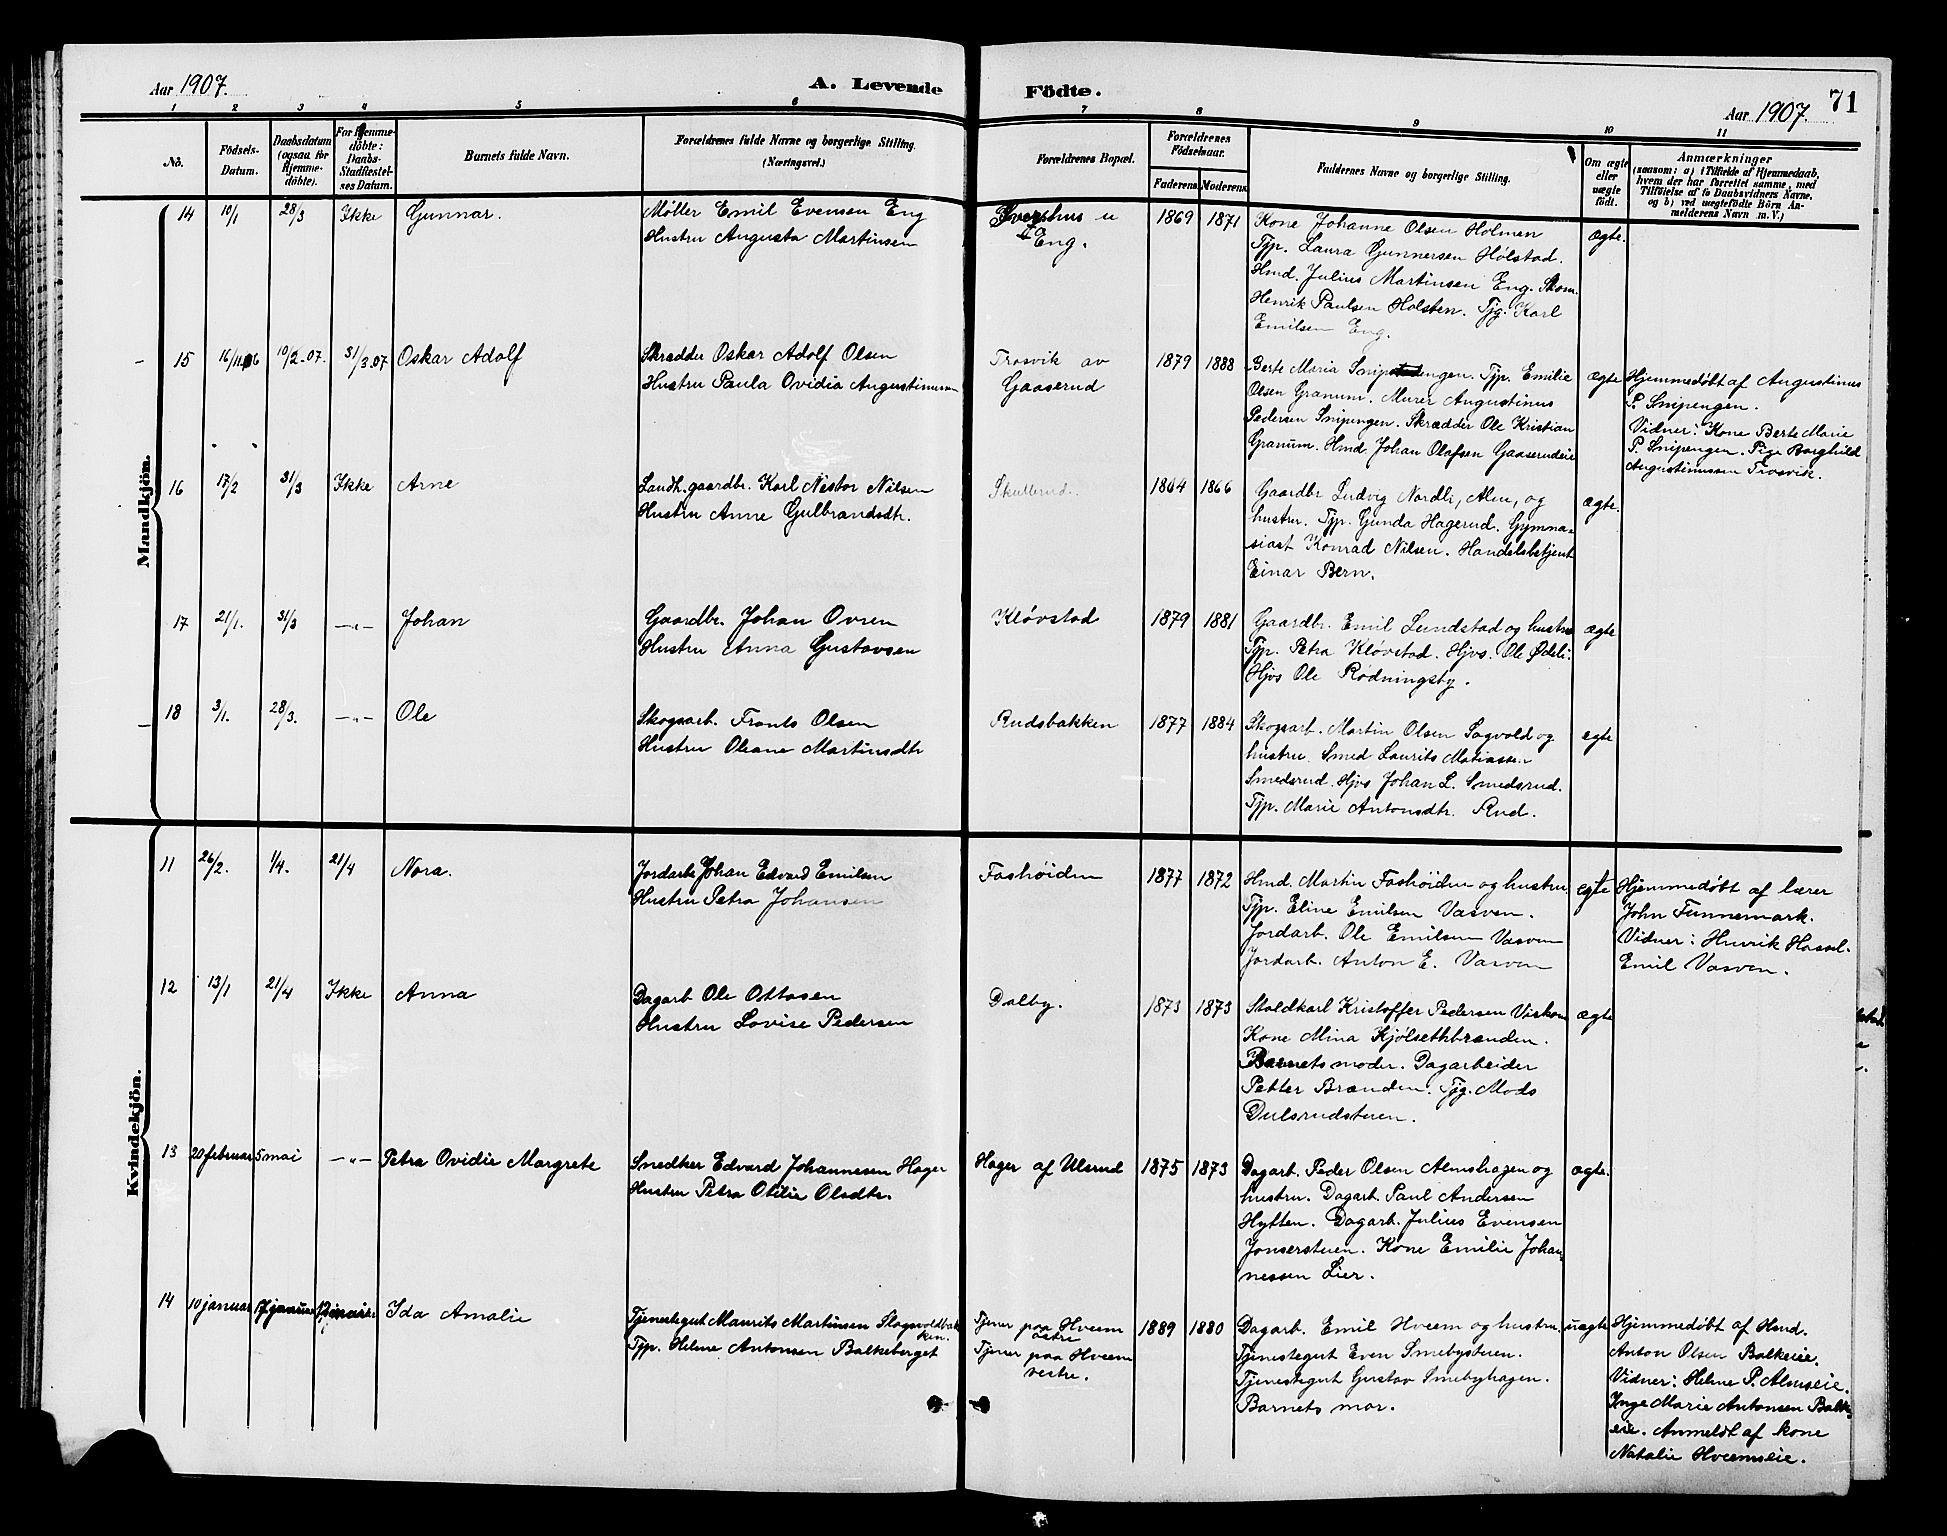 Aar 1907. A. Levende Födte. Aar 1907. 71
1 2 3 4 5 6 7 8 9 10 11
No.
Födsels-
Datum.
Daabsdatum
(ogsaa for
Hjemme-
döbte).
For Hjemme-
döbte:
Daabs-
Stadfæstel-
ses Datum.
Barnets fulde Navn.
Forældrenes fulde Navne og borgerlige Stilling.
(Næringsvei.)
Forældrenes Bopæl.
Forældrenes
Födselsaar.
Faderens Moderens
Faddernes Navne og borgerlige Stilling.
Om ægte
eller
uægte
födt.
Anmærkninger
(saasom: a) i Tilfælde af Hjemmedaab,
hvem der har forrettet samme, med
Tilföielse af to Daabsvidners Navne.
og b) ved uægtefödte Börn An-
melderens Navn m. V.)
Mandkjön.
14 10/1 28/3 Ikke Gunnar.
Møller Emil Evensen Eng
Hustru Augusta Martinsen
Svershus u
Eng.
1869 1871
Kone Johanne Olsen Holmen
Tjp. Laura Gunnersen Hølstad.
Hmd. Julius Martinsen Eng. Skom.
Henrik Paulsen Holsten. Tjg. Karl
Emilsen Eng.
ægte.
15 16/11.06 10/2.07. 31/3.07 Oskar Adolf
Skrædder Oskar Adolf Olsen
Hustru Paula Ovidia Augustinussen
Trosvik av
Gaaserud
1879 1888
Berte Maria Snipengen. Tjp. Emilie
Olsen Granum. Murer Augustinus
Pedersen Snipengen. Skrædder Ole Kristian
Granum. Hmd. Johan Olafsen Gaaserudeie
ægte
Hjemmedøbt af Augustinus
P. Snipengen.
Vidner: Kone Berte Marie
P. Snipengen. Pige Borghild
Augustinussen Trosvik.
16 17/2 31/3 Ikke Arne
Landh. gaardbr. Karl Nestor Nilsen
Hustru Anne Gulbrandsdtr.
Skullerud.
1864 1866
Gaardbr Ludvig Nordli, Alm, og
hustru. Tjp. Gunda Hagerud. Gymna-
siast Konrad Nilsen. Handelsbetjent
Einar Bern.
ægte.
17 21/1. 31/3 —"— Johan
Gaardbr. Johan Ovren
Hustru Anna Gustavsen
Kløvstad
1879 1881
Gaardbr. Emil Lundstad og hustru
Tjp. Petra Kløvstad. Hjvs. Ole Ødeli.
Hjvs Ole Rødningsby.
ægte
18 3/1. 28/3. —"— Ole
Skogsarb. Frants Olsen
Hustru Oleane Martinsdtr
Rudsbakken
1877 1884
Skogsarb. Martin Olsen Sagvold og
hustru. Smed Laurits Matiassen
Smedsrud. Hjvs Johan L. Smedsrud.
Tjp. Marie Antonsdtr. Rud.
ægte
Kvindekjön.
11 26/2. 1/4. 21/4 Nora.
Jordarb Johan Edvard Emilsen
Hustru Petra Johansen
Foshøiden
1877 1872
Hmd. Martin Foshøiden og hustru
Tjp. Eline Emilsen Vasven.
Jordarb. Ole Emilsen Vasven
Jordarb. Anton E. Vasven
egte
Hjemmedøbt af lærer
John Funnemark.
Vidner: Henrik Hassel.
Emil Vasven.
12 13/1 21/4 Ikke Anna
Dagarb Ole Ottosen
Hustru Lovise Pedersen
Dalby.
1873 1873
Staldkarl Kristoffer Pedersen
Kone Mina Kjølsethbrænden.
Barnets moder. Dagarbeider
Petter Brænden. Tjg. Mads
Dulsrudstuen.
ægte
13 20 februar 5 mai —"— Petra Ovidie Margrete
Snedker Edvard Johannesen Hager
Hustru Petra Otilie Olsdtr.
Hager af Ulsrud
1875 1873
Dagarb. Peder Olsen Almshagen og
hustru. Dagarb. Paul Andersen
Hytten. Dagarb. Julius Evensen
Jonserstuen. Kone Emilie Johan-
nessen Lier.
ægte.
14 10 januar 17 januar Ida Amalie
Tjenestegut Maurits Martinsen Slagvoldbak-
ken.
Tjp. Helene Antonsen Balkeberget
Tjener paa Hveem
østre
Tjener paa Hveem
vestre.
1889 1880
Dagarb. Emil Hveem og hustru.
Tjenestegut Even Smebystuen.
Tjenestegut Gustav Smebyhagen.
Barnets mor.
uægte
Hjemmedøbt af Hmd.
Anton Olsen Balkeeie.
Vidner: Helene P. Almseie.
Inge Marie Antonsen Balke-
eie. Anmeldt af kone
Natalie Hveemseie.